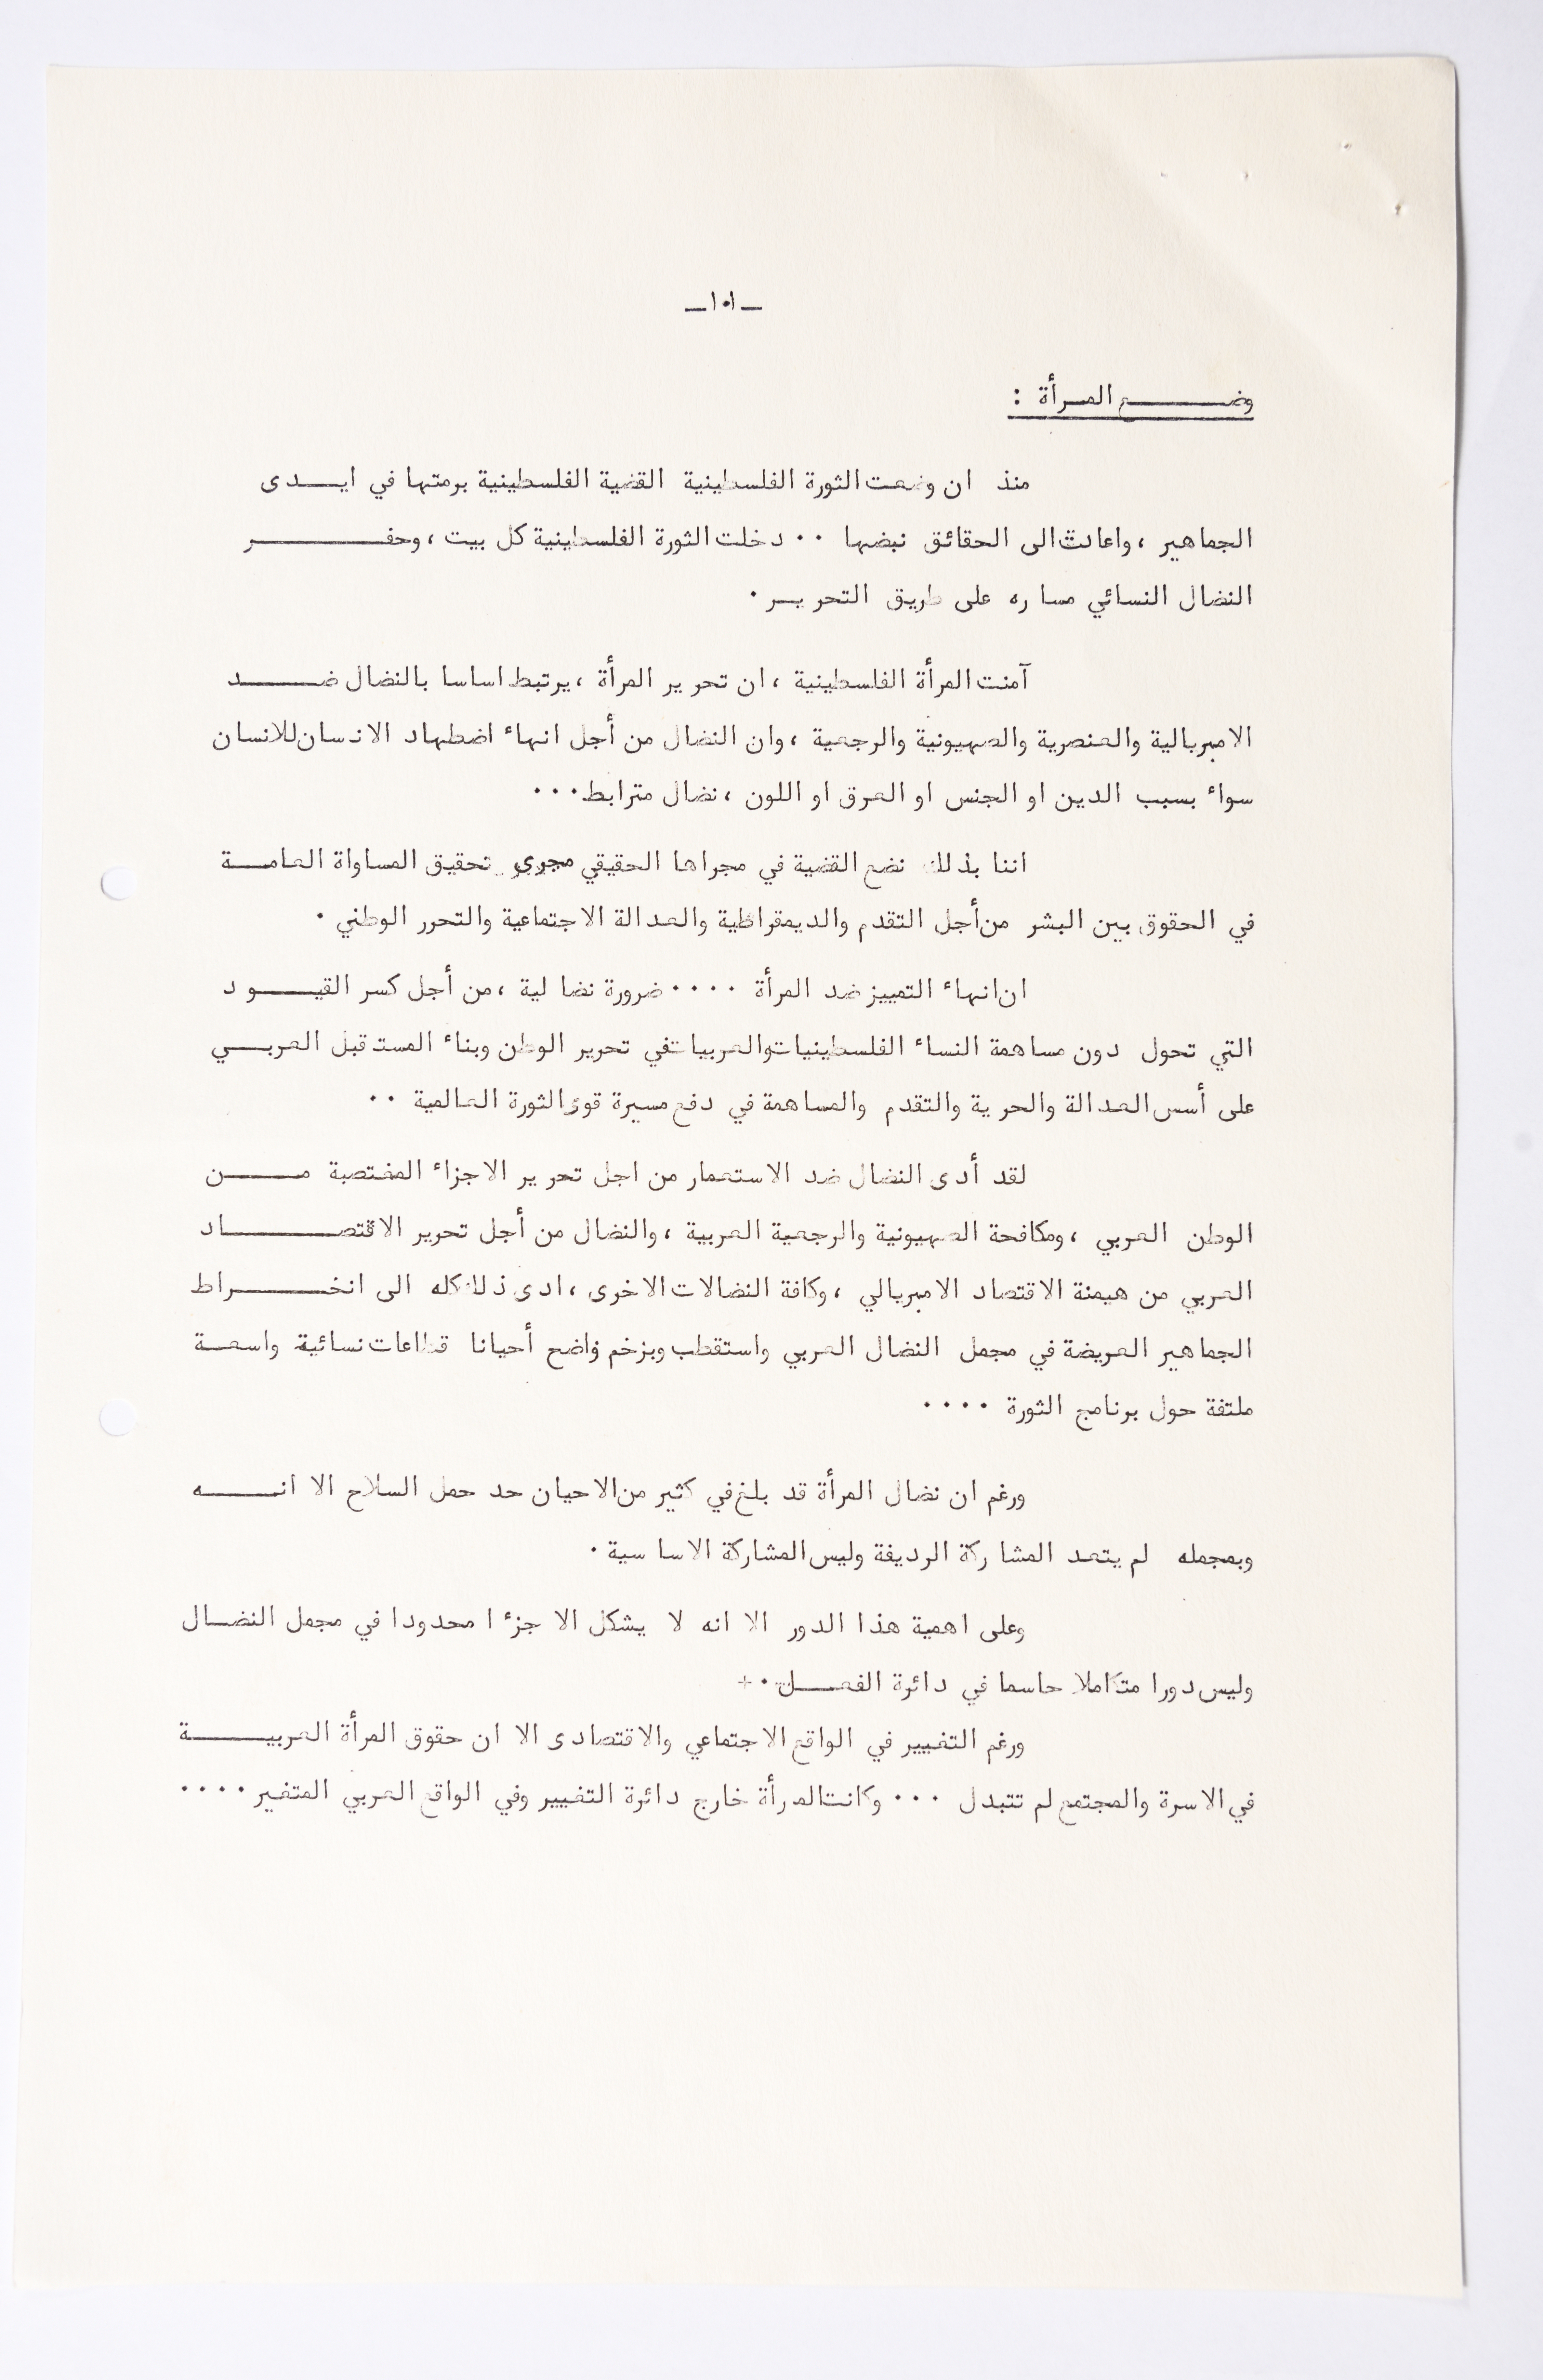 ـ١٠١ـ
وضـــــع المـرأة :
منذ ان وضعت الثورة الفلسطينية القضية الفلسطينية برمتها في ايـــدى
الجماهير ، واعادت الى الحقائق نبضها ٠٠ دخلت الثورة الفلسطينية كل بيت ، وحفـــــــر
النضال النسائي مساره على طريق التحريـر ٠
آمنت المرأة الفلسطينية ، ان تحرير المرأة ، يرتبط اساسا بالنضال ضـــــد
الامبريالية والعنصرية والصهيونية والرجعية ، وان النضال من أجل انهاء اضطهاد الانسان للانسان
سواء بسبب الدين او الجنس او العرق او اللون ، نضال مترابط ٠٠٠
اننا بذلك نضع القضية في مجراها الحقيقي مجرى تحقيق المساواة العامـــة
في الحقوق بين البشر من أجل التقدم والديمقراطية والعدالة الاجتماعية والتحرر الوطني ٠
ان انهاء التمييز ضد المرأة ٠٠٠٠ ضرورة نضالية ، من أجل كسر القيـــود
التي تحول دون مساهمة النساء الفلسطينيات والعربيات في تحرير الوطن وبناء المستقبل العربـــي
على أسس العدالة والحرية والتقدم والمساهمة في دفع مسيرة قوى الثورة العالمية ٠٠
لقد أدى النضال ضد الاستعمار من اجل تحرير الاجزاء المغتصبة مـــــن
الوطن العربي ، ومكافحة الصهيونية والرجعية العربية ، والنضال من أجل تحرير الاقتصـــــاد
العربي من هيمنة الاقتصاد الامبريالي ، وكافة النضالات الاخرى ، ادى ذلك كله الى انخـــــراط
الجماهير العريضة في مجمل النضال العربي واستقطب وبزخم واضح أحيانا قطاعات نسائية واسعـــة
ملتفة حول برنامج الثورة ٠٠٠٠
ورغم ان نضال المرأة قد بلغ في كثير من الاحيان حد حمل السلاح الا انـــــه
وبمجمله لم يتعد المشاركة الرديفة وليس المشاركة الاساسية ٠
وعلى اهمية هذا الدور الا انه لا يشكل الا جزءا محدودا في مجمل النضـــال
وليس دورا متكاملا حاسما في دائرة الفعـــل ٠+
ورغم التغيير في الواقع الاجتماعي والاقتصادى الا ان حقوق المرأة العربيـــــة
في الاسرة والمجتمع لم تتبدل ٠٠٠ وكانت المرأة خارج دائرة التغيير وفي الواقع العربي المتغير ٠٠٠٠